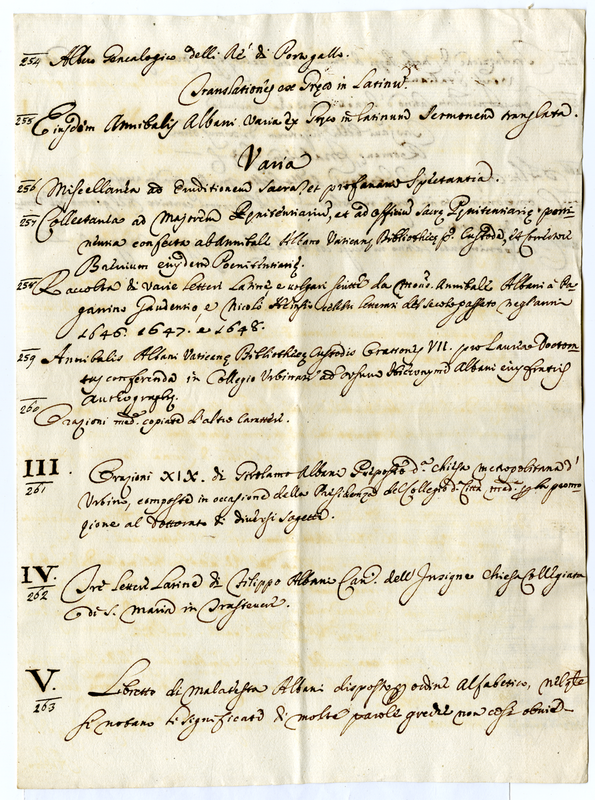 254 Albero Genealogico delli Rè di Portogallo.
Translationes ex Greco in Latinu.
255 Eiusdem Annibalis Albani varia ex Greco in latinum Sermonem translata.
Varia
256 Miscellanea ad Eruditionem Sacra, et profanam Spectantia.
257 Collectanea ad Majorem Penitentiarium, et ad officium Sacre Penitentiarie perti-
nentia confecta ab Annibale Albano Vaticane Bibliothece po. Custode,
Brevium eiusdem Poenitentiarie.
258 Raccolta di varie lettere Latine e volgari scritte da Mons. Annibale Albani à Pa-
ganino Gaudentio e Nicolò Heinsio celebri letterati del secolo passato negl'anni
1646. 1647. e 1648.
259 Annibalis Albani Vaticane Bibliothece Custodis Orationes VII. pro Laurea Doctora-
tus conferenda in Collegio Urbinate ad usum Hieronymi Albani eius fratris
Authographe.
260
Orazioni med. copiate d'altro Carattere.
III.
261
Orazioni XIX. di Girolamo Albani Preposto d. chiesa metropolitana d'
Urbino, composte in occasione della Presidenza del Collegio d. Città med. p. la promo-
zione al Dottorato di diversi Sogetti.
IV.
262
Tre Lettere Latine di Filippo Albani Can. dell'Insigne Chiesa Collegiata
di S. Maria in Trastevere.
V.
263
Libretto di Malatesta Albani disposto p ordine Alfabetico, nel qle
si notano li significati di molte parole greche non così obvie-